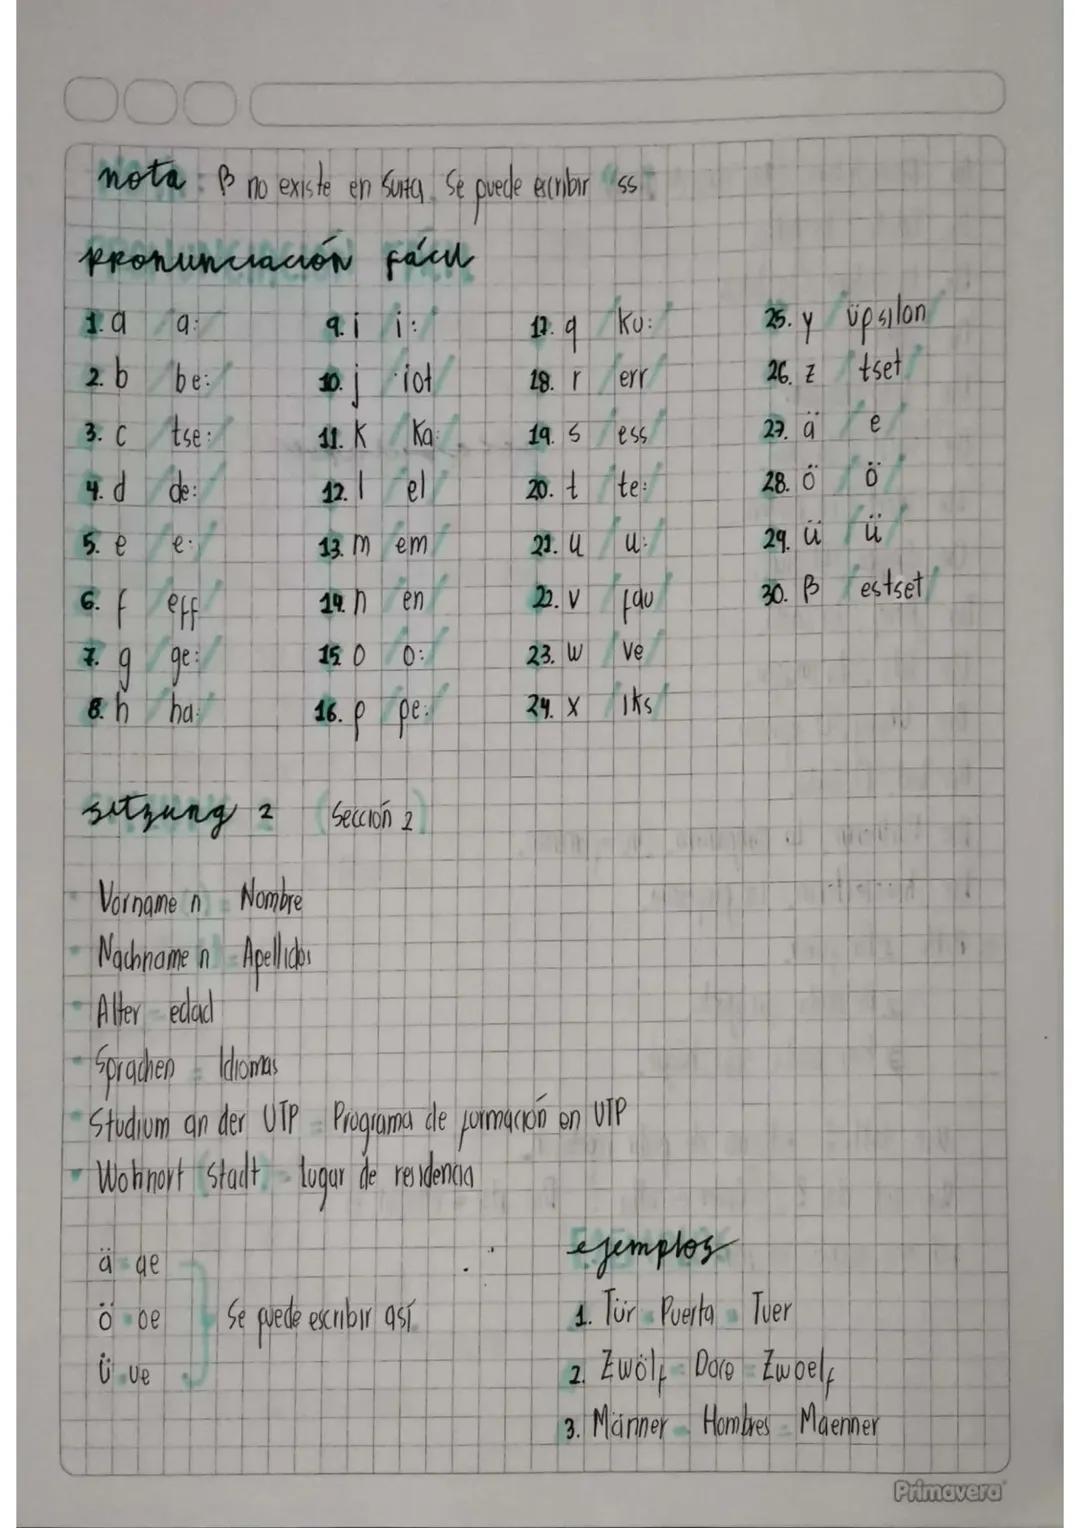 nota : β no existe en Suiza. Se puede escribir "ss".
pronunciación fácil
1. a /a:/
2. b /be:/
3. c /tse:/
4. d /de:/
5. e /e:/
6. f /eff/
7. g /ge:/
8. h /ha:/
9. i /i:/
10. j /iot/
11. K /Ka:/
12. l /el/
13. m /em/
14. n /en/
15. o /o:/
16. p /pe:/
17. q /Ku:/
18. r /err/
19. s /ess/
20. t /te:/
21. u /u:/
22. v /fau/
23. w /ve/
24. x /iks/
25. y /üpsilon/
26. z /tset/
27. ä /e/
28. ö /ö/
29. ü /ü/
30. β /estset/
sitzung 2 (Sección 2)
Vorname n = Nombre
Nachname n = Apellidos
Alter = edad
Sprachen = Idiomas
Studium an der UTP = Programa de formación en UTP
Wohnort (Stadt) = lugar de residencia
ä = ae
ö = oe
Ü = ue
Se puede escribir así.
ejemplos
1. Tür = Puerta = Tuer
2. Zwölf = Doce = Zwoelf
3. Männer = Hombres = Maenner
Primavera